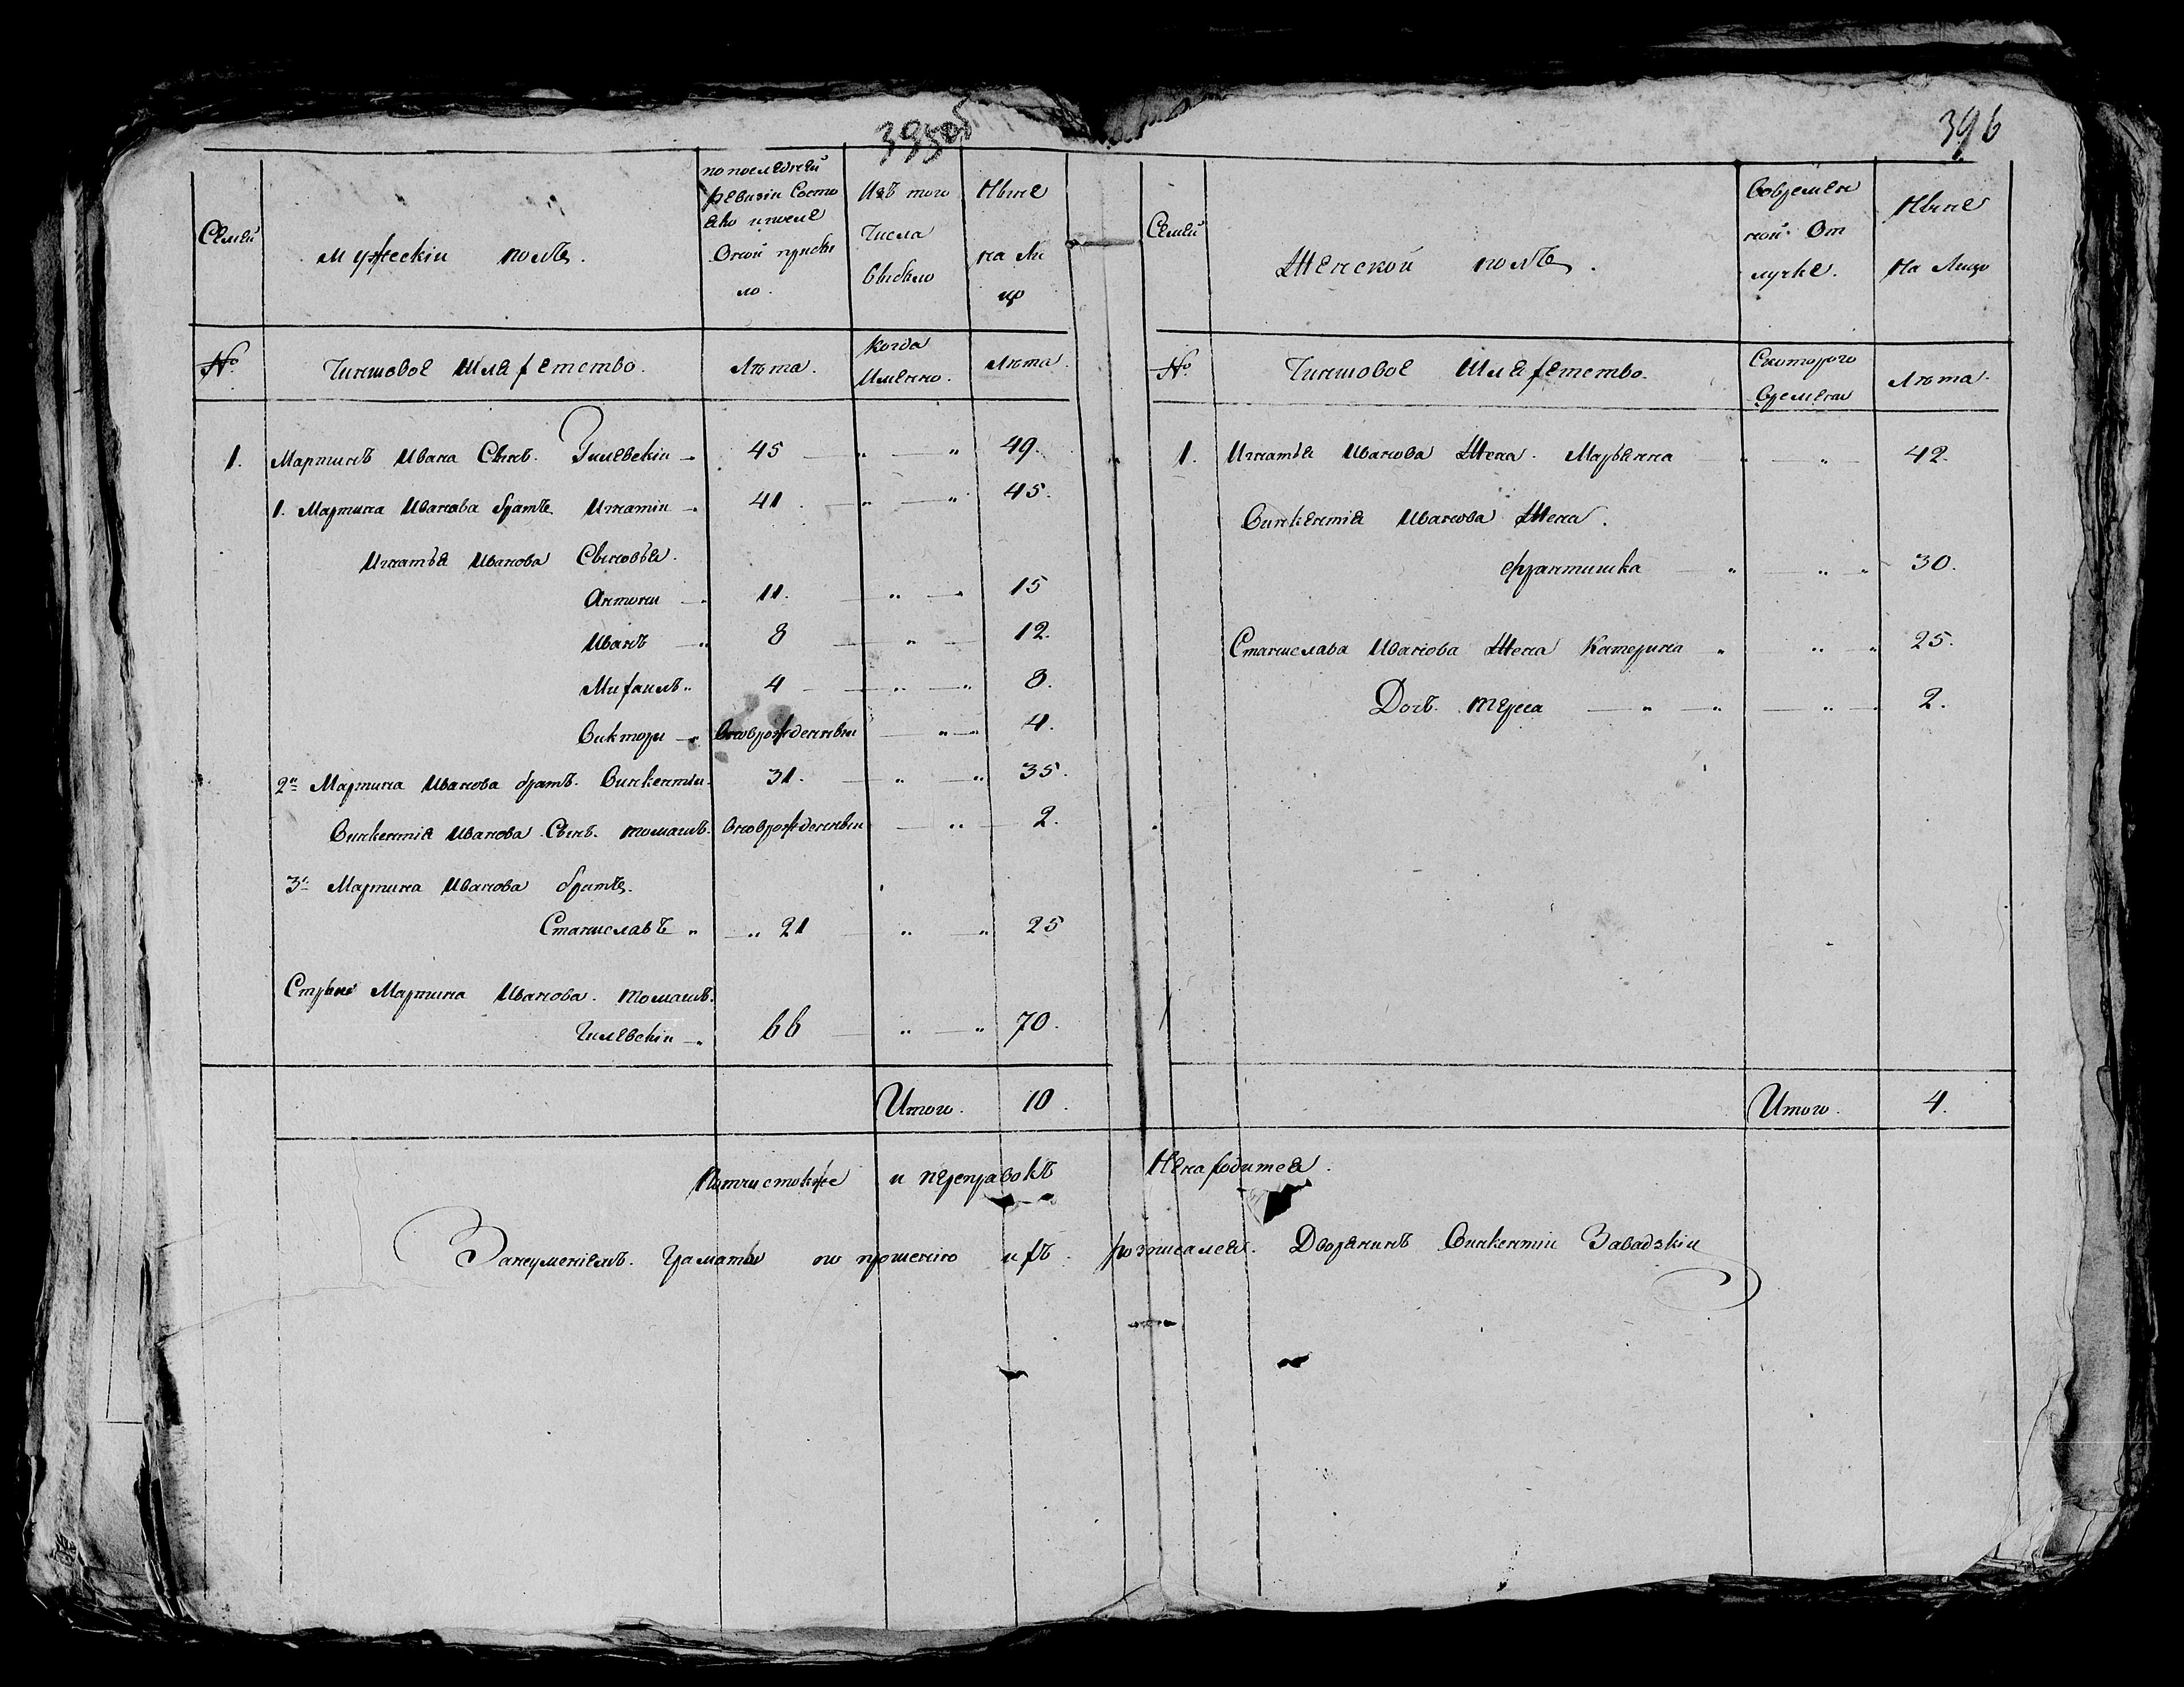 395об
396
Семьи
мужескiи полъ.
по последней
ревизiи Состо
яло и после
Оной прибы
ло.
Изъ того
Числа
выбыло
Ныне
на Ли
цо
№
Чиншовое Шляхетство.
Лѣта.
когда
Именно.
Лѣта.
1. Мартинъ Ивана Сынъ. Гилевскiи 45 49.
1. Мартина Иванова братъ Игнатiи 41 45.
Игнатья Иванова Сыновья.
Антони 11. 15
Иванъ 8 12.
Михаилъ 4 8.
Виктори Вноврожденныи 4.
2й Мартина Иванова братъ. Винкентiи. 31. 35.
Винкентiя Иванова Сынъ. Томашъ. Вноврожденныи 2.
3й Мартина Иванова братъ.
Станиславъ 21 25
Стрыи Мартина Иванова. Томашъ.
Гилевскiи 66 70.
Итого. 10.
Семьи
Женской полъ.
Вовремен
ной От
лучке.
Ныне
На Лицо
№
Чиншовое Шляхетство.
Скоторого
Времени
Лѣта.
1. Игнатья Иванова Жена. Марьянна 42.
Винкентiя Иванова Жена.
Франтишка 30.
Станислава Иванова Жена Катерина 25.
Дочъ. Тереса 2.
Итого. 4.
Почистокже и переправокъ Ненаходится.
Занеуменiемъ. Грамоты по прошенiю ихъ росписался. Дворянинъ Винкентiи Завадзкiи